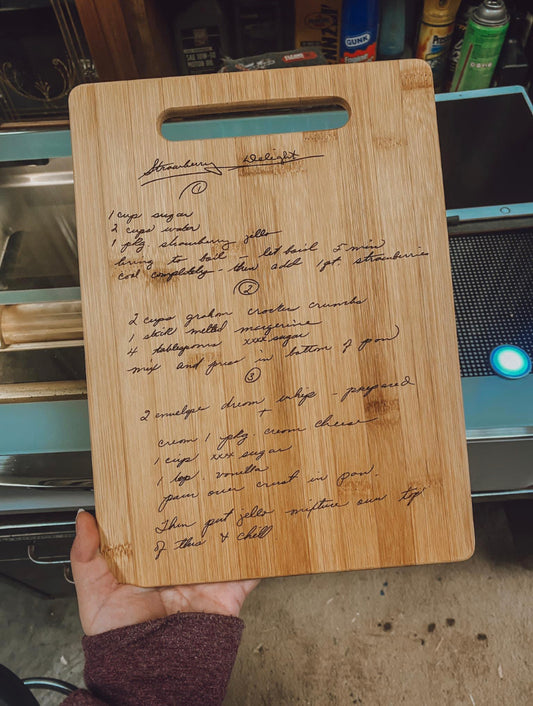 GUNK
MOTOR OIL
Strawberry Delight
1
1 cup sugar
2 cups water
1 pkg. strawberry jello
bring to boil - let boil 5 min
cool completely - then add 1 pt. strawberries
2
2 cups graham cracker crumbs
1 stick melted margerine
4 tablespoons xxx sugar
mix and press in bottom of pan)
3
2 envelope dream whip - prepared
+
cream 1 pkg. cream cheese
1 cup xxx sugar
1 tsp. vanilla
pour over crust in pan.
Then put jello mixture over top
of this & chill